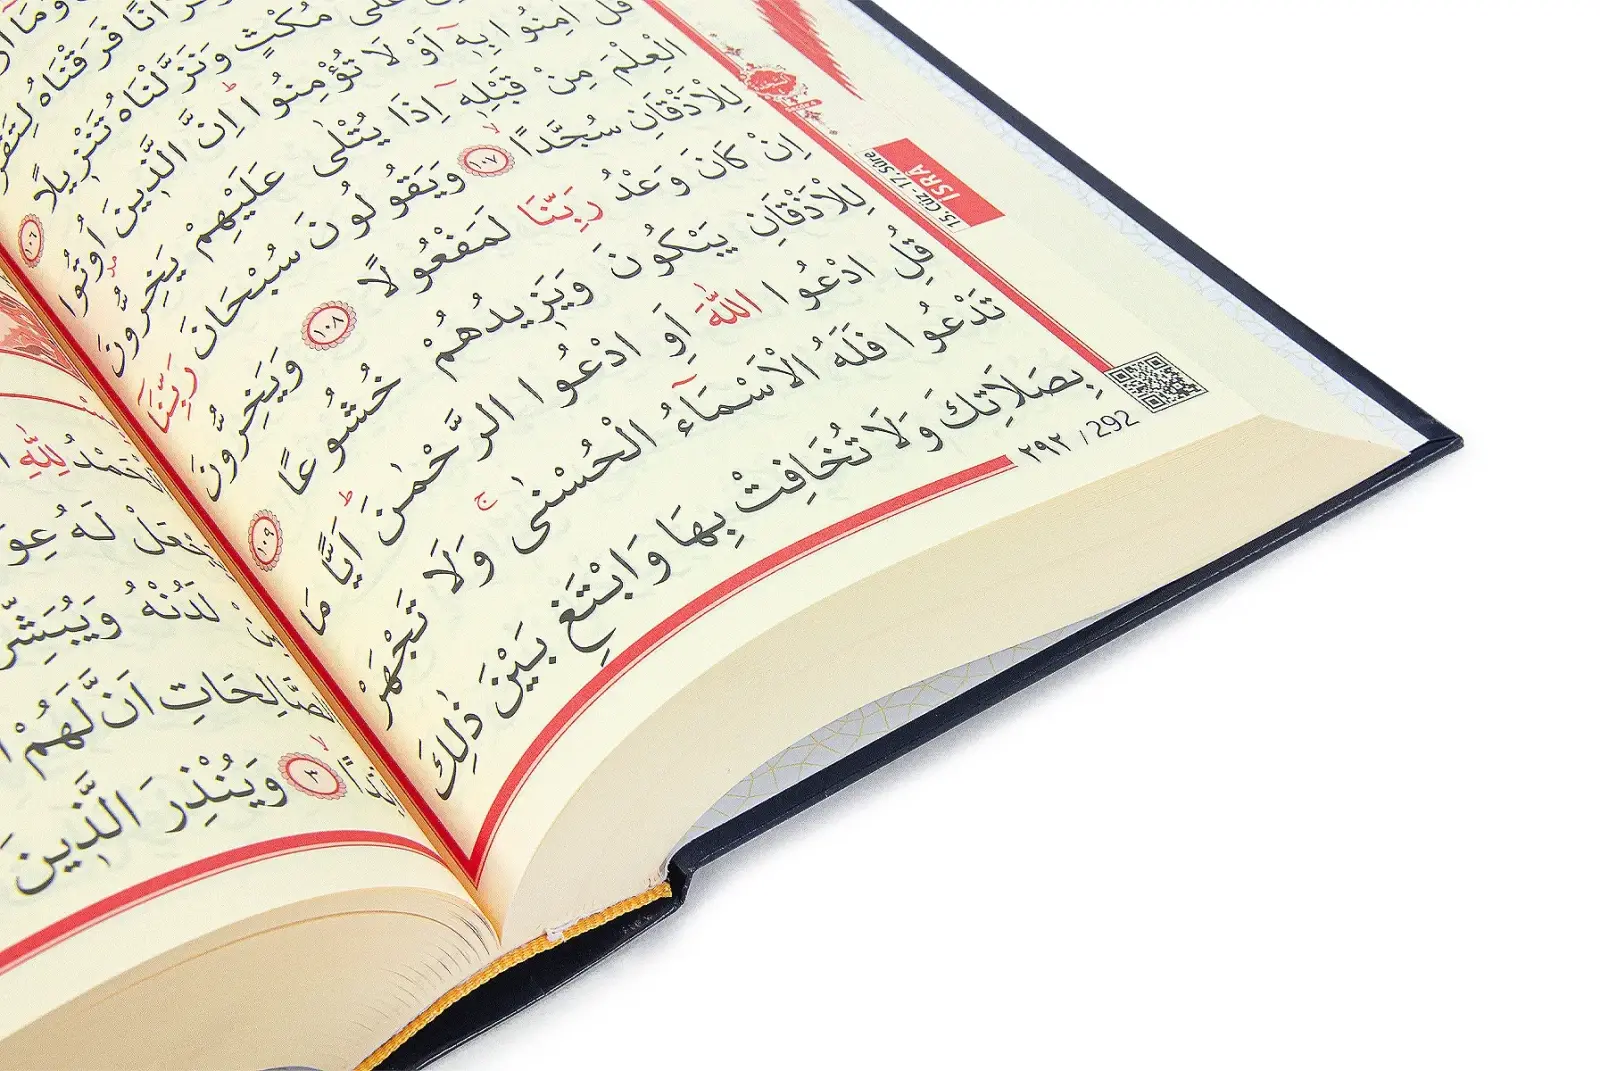 فَرَقْنَاهُ
عَلٰى مُكْثٍ وَنَزَّلْنَاهُ تَنْز۪يلًا ١٠٦
قُلْ اٰمِنُوا بِه۪ٓ اَوْ لَا تُؤْمِنُواۜ اِنَّ الَّذ۪ينَ اُو۫تُوا
الْعِلْمَ مِنْ قَبْلِه۪ٓ اِذَا يُتْلٰى عَلَيْهِمْ يَخِرُّونَ
لِلْاَذْقَانِ سُجَّدًاۙ ١٠٧ وَيَقُولُونَ سُبْحَانَ رَبِّنَٓا
اِنْ كَانَ وَعْدُ رَبِّنَا لَمَفْعُولًا ١٠٨ وَيَخِرُّونَ
لِلْاَذْقَانِ يَبْكُونَ وَيَز۪يدُهُمْ خُشُوعًا ١٠٩
قُلِ ادْعُوا اللّٰهَ اَوِ ادْعُوا الرَّحْمٰنَۜ اَيًّا مَا
تَدْعُوا فَلَهُ الْاَسْمَٓاءُ الْحُسْنٰىۚ وَلَا تَجْهَرْ
بِصَلَاتِكَ وَلَا تُخَافِتْ بِهَا وَابْتَغِ بَيْنَ ذٰلِكَ
٢٩٢ / 292
15. Cüz - 17. Sûre
İSRÂ
لِلّٰهِ
لَهُ
لَدُنْهُ وَيُبَشِّرَ
الصَّالِحَاتِ اَنَّ لَهُمْ
٢ وَيُنْذِرَ الَّذ۪ينَ